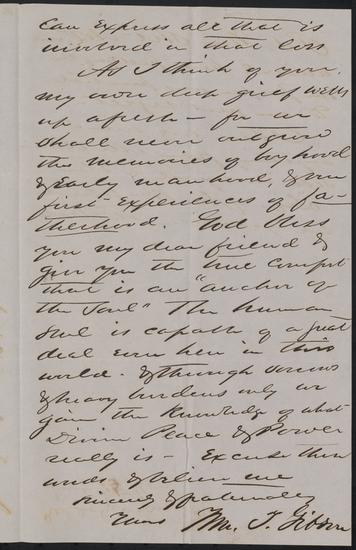 can express all that is
involved in that loss
As I think of you,
my own deep grief wells
up afresh – for we
shall never outgrow
the memories of boyhood
& early manhood, & our
first experiences of fa-
therhood. God bless
you my dear friend &
give you the true comfort
that is an "anchor of
the soul" The human
soul is capable of a great
deal even here in this
world. & through sorrows
& heavy burdens only we
gain the knowledge of what
Divine Peace & Power
really is – Excuse these
words & believe me
Sincerely & fraternally
Yours Wm. T. Gibson